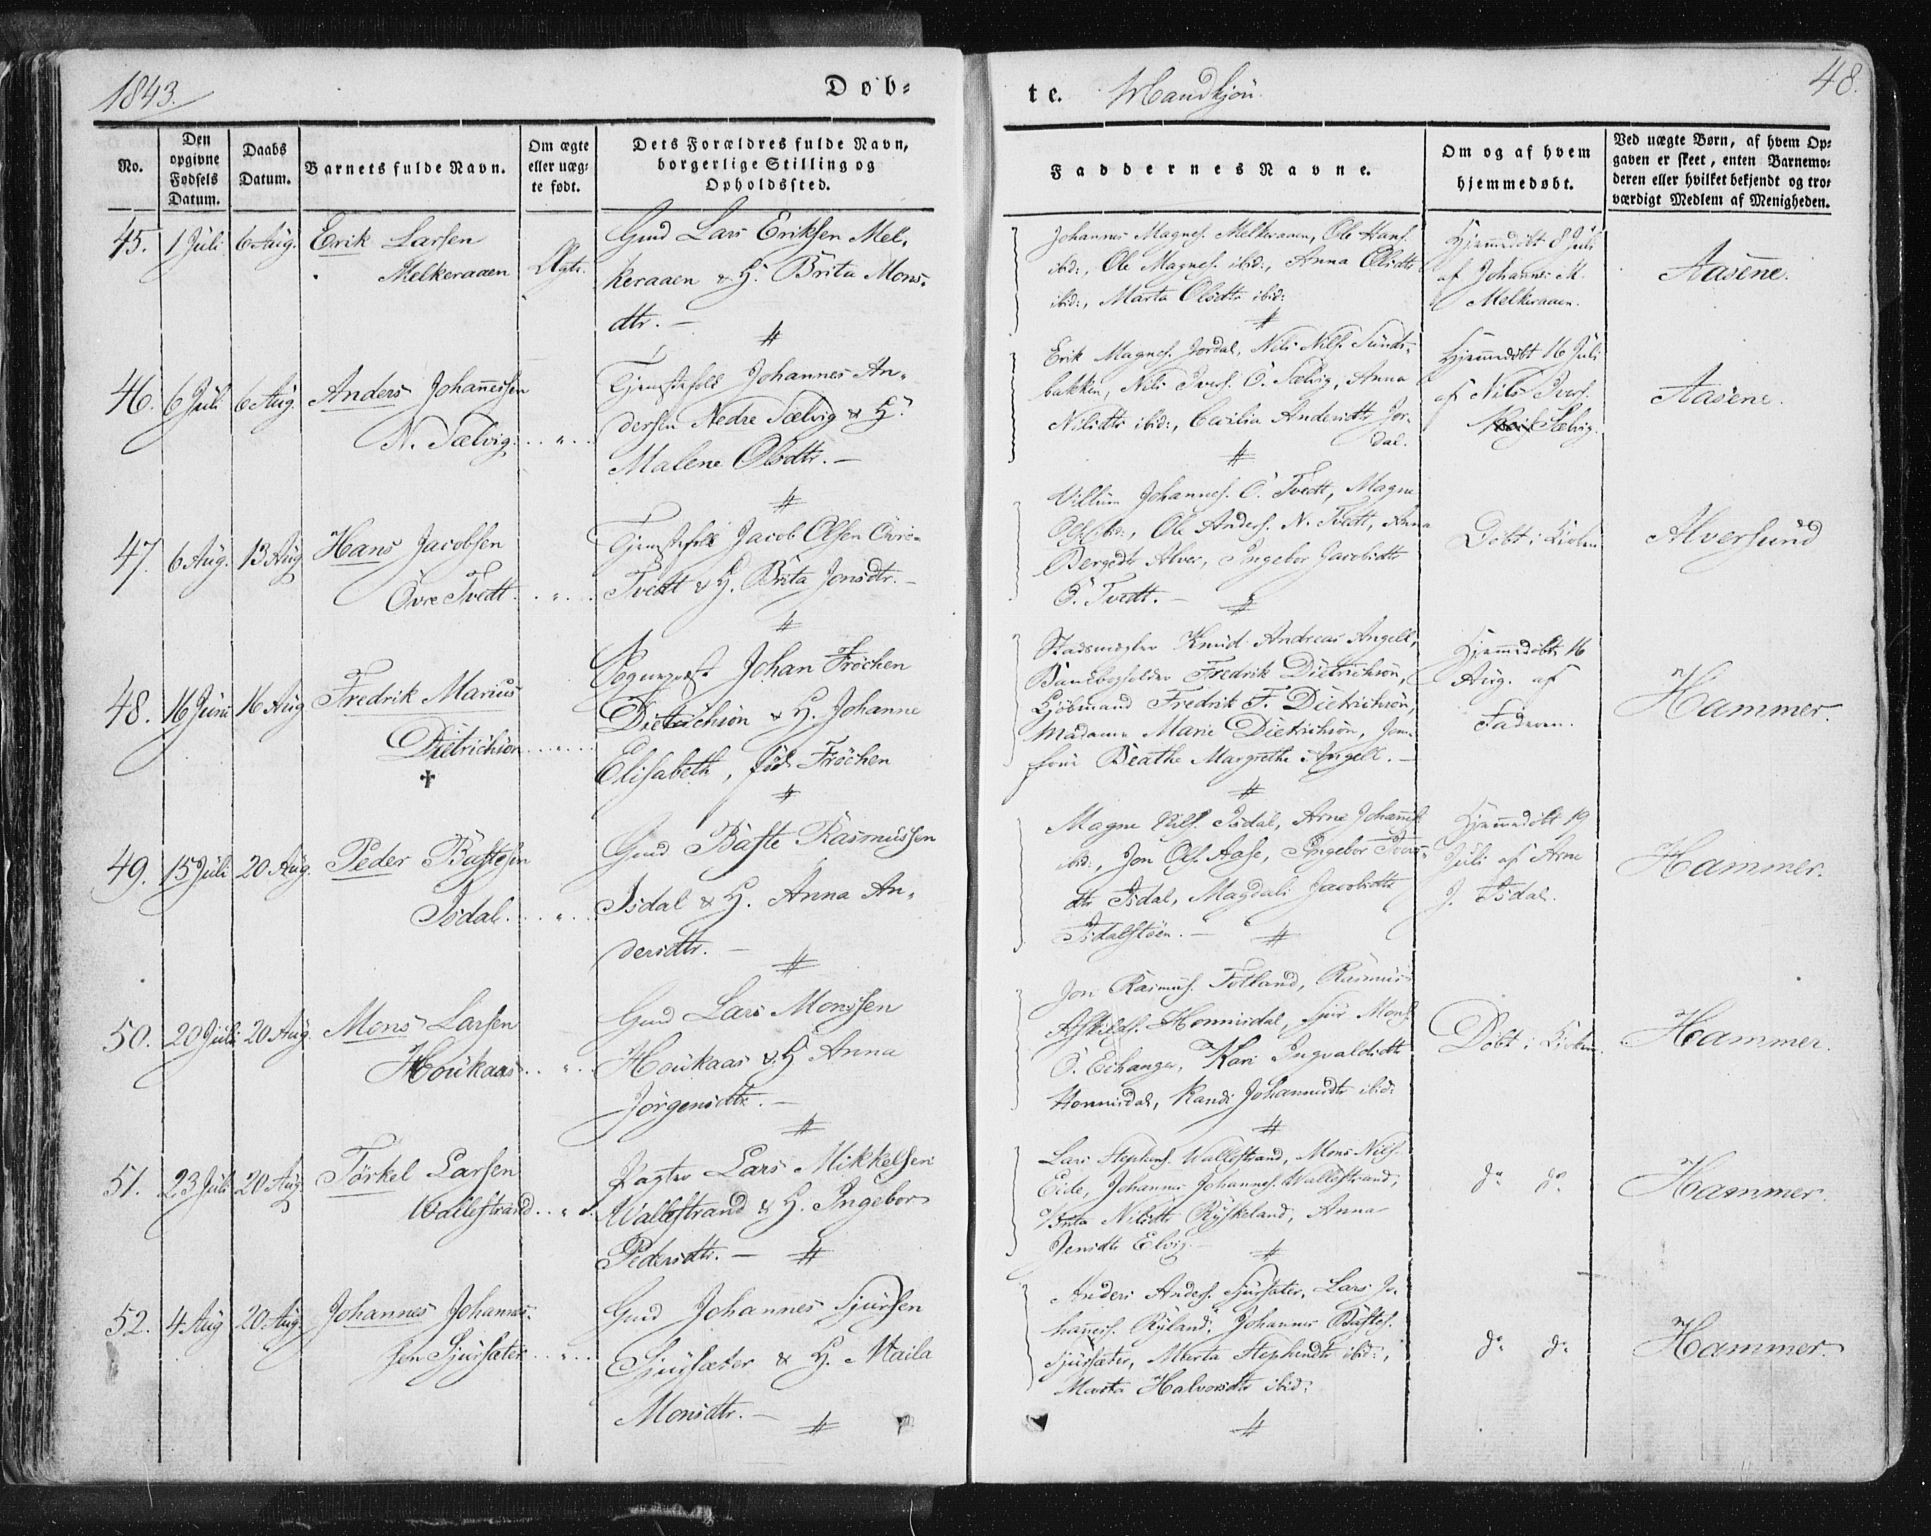 1843.
Döb-
te. Mandkjön
48.
No.
Den opgivne Fødsels Datum.
Daabs Datum.
Barnets fulde Navn.
Om ægte eller uæg-
te født.
Dets Forældres fulde Navn,
borgerlige Stilling og
Opholdssted.
Faddernes Navne.
Om og af hvem
hjemmedøbt.
Ved uægte Børn, af hvem Op-
gaven er skeet, enten Barnemo-
deren eller hvilket bekjendt og tro-
værdigt Medlem af Menigheden.
45. 1 Juli 6 Aug. Erik Larsen
Melkeraaen Ægte.
Gmd Lars Eriksen Mel-
keraaen & H. Brita Mons-
dtr. —
Johannes Magnes. Melkeraaen, Ole Hans.
ibid:, Ole Magnes. ibid:, Anna Olsdtr
ibid:, Marta Olsdtr ibid:
Hjemmedöbt 8 Juli
af Johannes M.
Melkeraaen.
Aasene.
46. 6 Juli 6 Aug. Anders Johannessen
N. Sælvig. . . " . .
Tjenestefolk Johannes An-
dersen Nedre Sælvig & H.
Malene Olsdtr. —
Erik Magnes. Jordal, Nils Nils. Sunds-
bakken, Nils Ivers. Ö. Sælvig, Anna
Nilsdtr ibid:, Cecilia Andersdtr Jor-
dal.
Hjemmedöbt 16 Juli
af Nils Ivers.
Sælvig.
Aasene.
47. 6 Aug. 13 Aug Hans Jacobsen
Övre Tvedt . . " . .
Tjenestefolk Jacob Olsen Övre
Tvedt & H. Brita Jonsdtr. —
Villum Johannes. Ö. Tvedt, Magne
Ols. ibid:, Ole Anders. N. Tvedt, Anna
Bergedtr Alver, Ingebor Jacobsdtr
Ö. Tvedt. —
Döbt i Kirken
Alversund
48. 16 Juni 16 Aug Fredrik Marius
Dietrichson . . . " . .
✝
Sognepræst Johan Fröchen
Dietrichson & H. Johanne
Elisabeth, föd Fröchen
Stadsmægler Knud Andreas Angell,
Fredrik Dietrichson,
Kjöbmand Fredrik F. Dietrichson,
Madame Marie Dietrichson, Jom-
fru Beathe Margrethe Angell. —
Hjemmedöbt 16
Aug. af
Faderen.
Hammer.
49. 15 Juli 20 Aug. Peder Bastesen
Isdal. . . " . .
Gmd Baste Rasmussen
Isdal & H. Anna An-
dersdtr. —
Magne Nils. Isdal, Arne Johannes.
ibid:, Jon Ols. Aase, Ingebor Ivers-
dtr Isdal, Magdali Jacobsdtr
Isdalstöen. —
Hjemmedöbt 19
Juli af Arne
J. Isdal.
Hammer.
50. 20 Juli 20 Aug. Mons Larsen
Houkaas . . " . .
Gmd Lars Monssen
Houkaas & H. Anna
Jörgensdtr. —
Jon Rasmus. Fotland, Rasmus
Askilds. Honnisdal, Sjur Mons.
Ö. Echanger, Kari Ingvaldsdtr
Honnisdal, Randi Johannisdtr ibid:
Döbt i Kirken.
Hammer.
51. 23 Juli 20 Aug. Törkel Larsen
Wallestrand . . " . .
Pagter Lars Mikkelsen
Wallestrand & H. Ingebor
Pedersdtr. —
Lars Stephens. Wallestrand, Mons Nils.
Eide, Johannes Johannes. Wallestrand,
Brita Nilsdtr Ryskeland, Anna
Jensdtr Elvig. —
do do
Hammer.
52. 4 Aug 20 Aug. Johannes Johannes-
sen Sjursæter . . " . .
Gmd Johannes Sjursen
Sjursæter & H. Maila
Monsdtr. —
Anders Anders. Sjursæter, Lars Jo-
hanness. Ryland, Johannes Bastes.
Sjursæter, Marta Stephensdtr ibid:,
Marta Halvorsdtr ibid:
do do
Hammer.